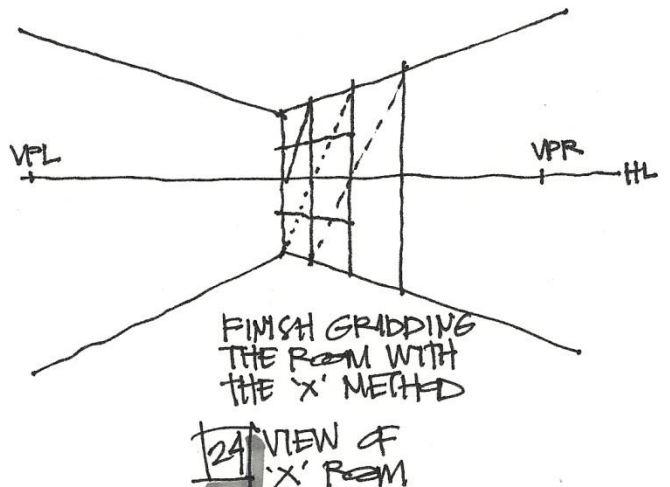 VPL
VPR
HL
FINISH GRIDDING
THE ROOM WITH
THE 'X' METHOD
24 VIEW OF
'X' ROOM